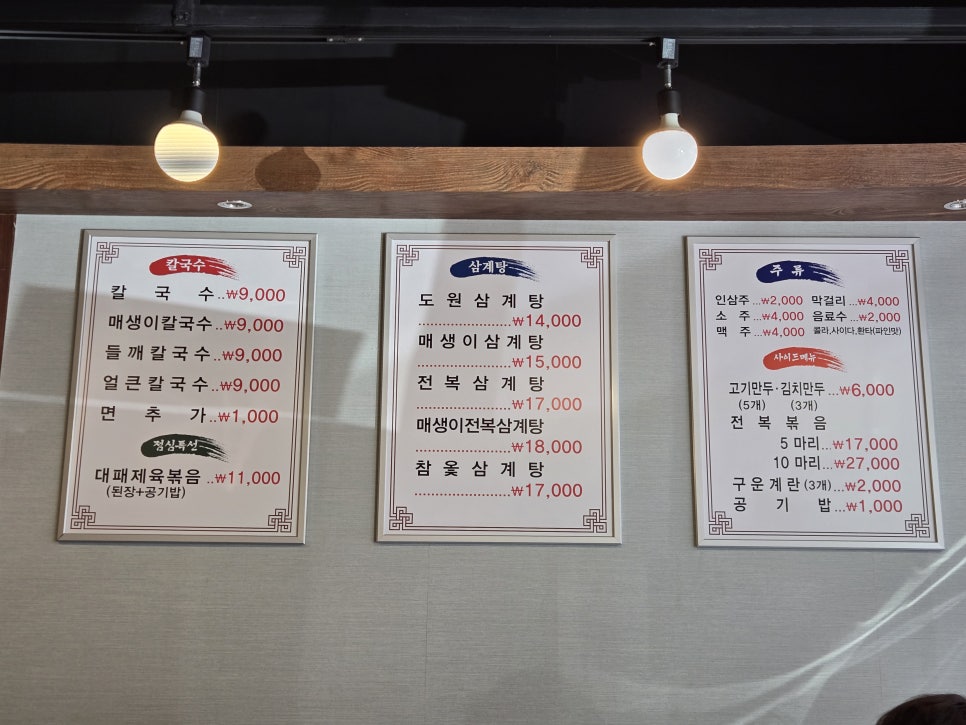 칼국수
칼 국 수..₩9,000
매생이칼국수..₩9,000
들깨칼국수..₩9,000
얼큰칼국수..₩9,000
면 추 가..₩1,000
점심특선
대패제육볶음..₩11,000
(된장+공기밥)
삼계탕
도원삼계탕
........................₩14,000
매생이삼계탕
........................₩15,000
전복삼계탕
........................₩17,000
매생이전복삼계탕
........................₩18,000
참옻삼계탕
........................₩17,000
주류
인삼주...₩2,000 막걸리...₩4,000
소 주...₩4,000 음료수...₩2,000
맥 주...₩4,000 콜라,사이다,환타(파인맛)
사이드메뉴
고기만두·김치만두...₩6,000
(5개) (3개)
전복볶음
5 마리...₩17,000
10 마리...₩27,000
구운계란(3개)...₩2,000
공 기 밥...₩1,000